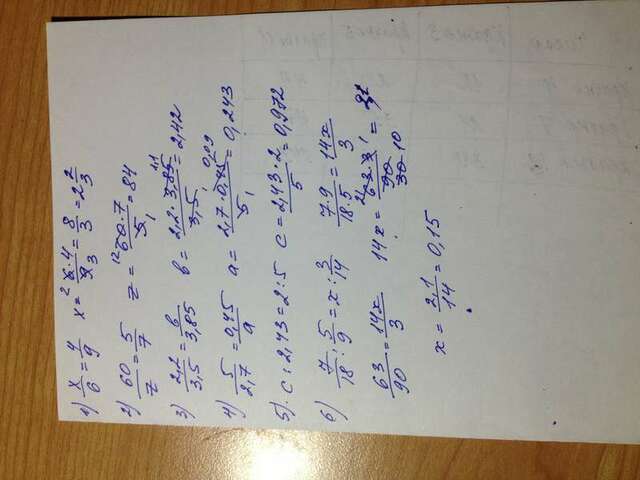 1) x/6 = 4/9 x = 2 6·4/9 3 = 8/3 = 2 2/3
2) 60/z = 5/7 z = 12 60·7/5 1 = 84
3) 2,2/3,5 = в/3,85 в = 2,2·3,85 1,1/3,5 1 = 2,42
4) 5/2,7 = 0,45/a a = 2,7·0,45 0,09/5 1 = 0,243
5). c : 2,43 = 2 : 5 c = 2,43·2/5 = 0,972
6) 7/18 : 5/9 = x : 3/14 7·9/18·5 = 14x/3
63/90 = 14x/3 14x = 21 63·3 1/90 30 10 =
x = 2,1/14 = 0,15